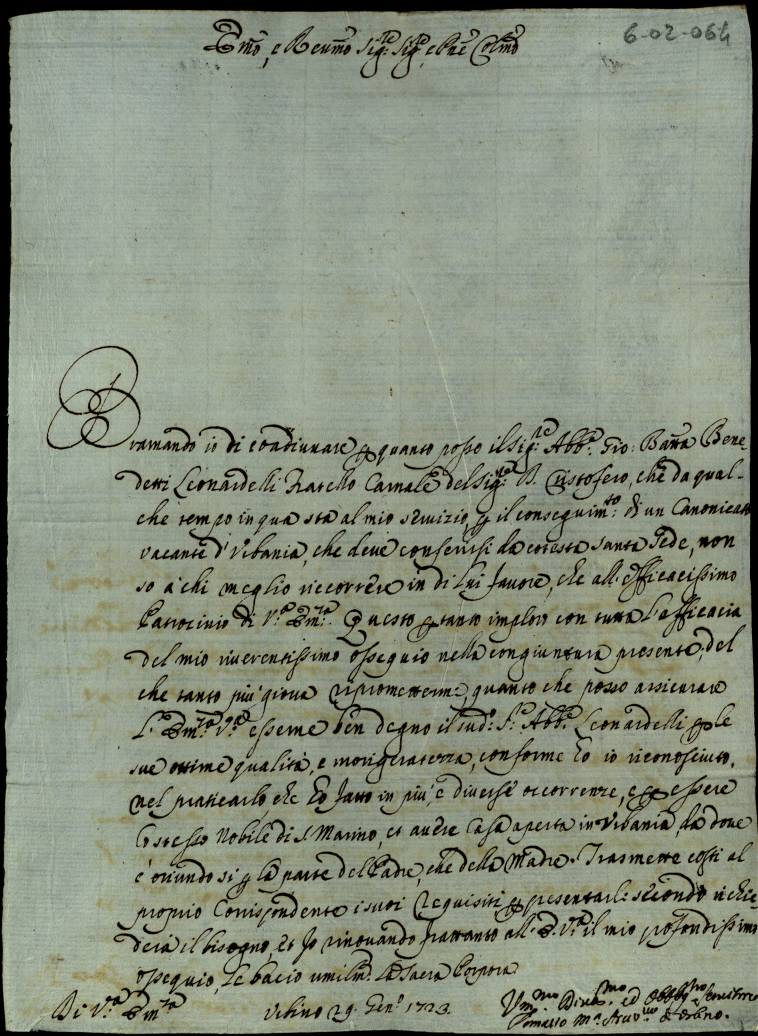 6-02-064
Em̃o, e Reum̃o Sig.re Sig.re, e Prñe Colm̃o
Bramando io di coadiuuare per quanto posso il Sig.re Abb.e Gio: Batta Bene-
detti Leonardelli Fratello Carnale del Sig.re D. Cristofero, che da qual-
che tempo in qua stà al mio seruizio, per il conseguim.to di un Canonicato
vacante d'Vrbania, che deue conferirsi da cotesta Santa Sede, non
so à chi meglio ricorrere in di lui fauore, che all'efficacissimo
Patrocinio di V.ra Em.za. Questo per tanto imploro con tutta l'efficacia
del mio riuerentissimo ossequio nella congiuntura presente, del
che tanto più gioua ripromettermi, quanto che posso assicurare
l'Em.za V.ra esserne ben degno il sud.o S.r Abb.e Leonardelli per le
sue ottime qualità, e morigeratezza, conforme hò io riconosciuto,
nel praticarlo che hò fatto in più, e diuerse occorrenze, e per essere
lo stesso Nobile di S. Marino, et auere Casa aperta in Vrbania, da doue
è oriundo si per la parte del Padre, che della Madre. Trasmette costì al
proprio Corrispondente i suoi Requisiti per presentarli secondo richie-
derà il bisogno, et Io rinouando frattanto all'E. V.ra il mio profondissimo
ossequio, le bacio umilm.te la Sacra Porpora
Di V.ra Em.za Vrbino 29. Gen.o 1723.
Vm.mo Diuot.mo ed Obblig.mo Seruitore
Tomasso M.a Arciu.uo d'Vrbino.